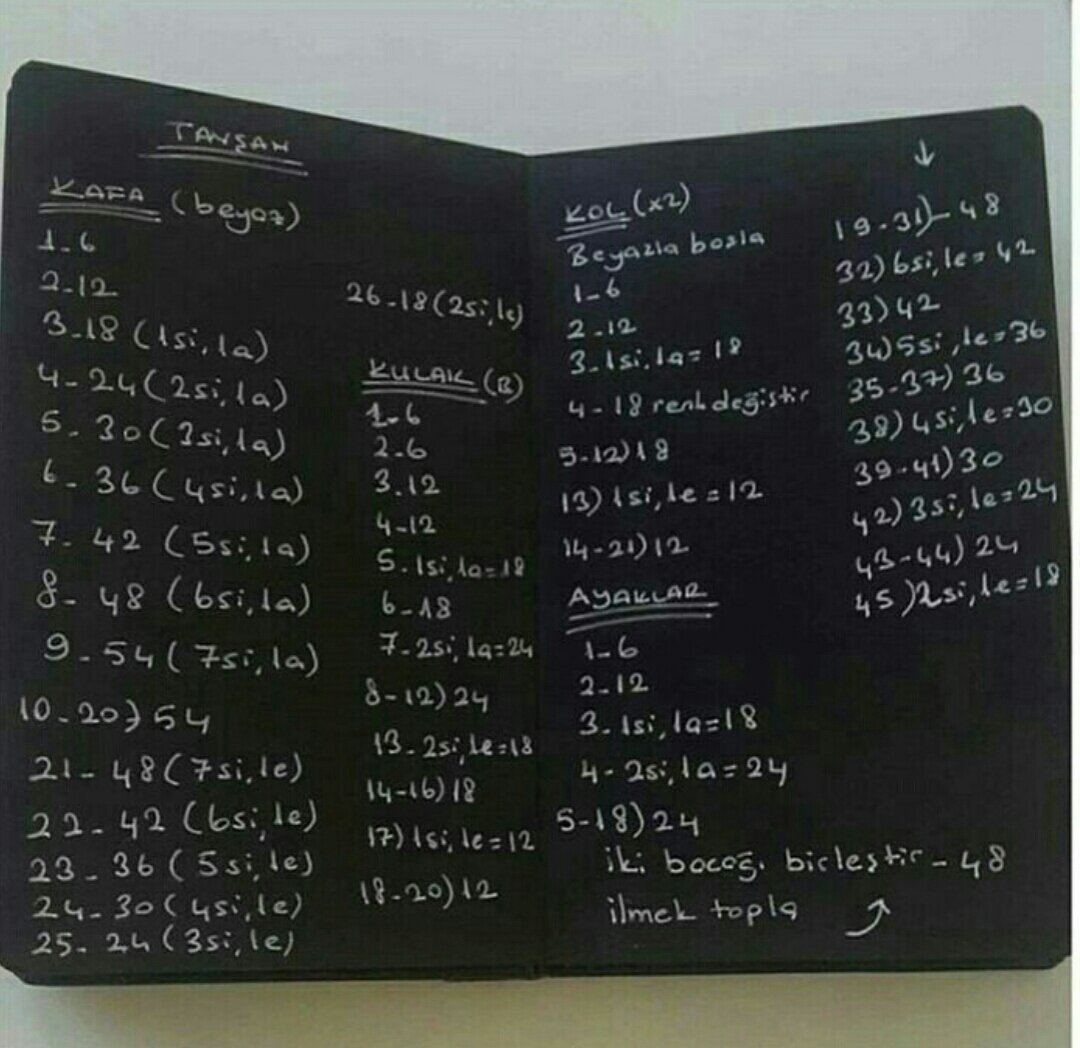 TAVŞAN
KAFA (beyaz)
1-6
2-12
3-18 (1si, 1a)
4-24 (2si, 1a)
5-30 (3si, 1a)
6-36 (4si, 1a)
7-42 (5si, 1a)
8-48 (6si, 1a)
9-54 (7si, 1a)
10-20) 54
21-48 (7si, 1e)
22-42 (6si, 1e)
23-36 (5si, 1e)
24-30 (4si, 1e)
25-24 (3si, 1e)
26-18 (2si, 1e)
KULAK (B)
1-6
2-6
3.12
4-12
5. 1si, 1a=18
6-18
7-2si, 1a=24
8-12) 24
13-2si, 1e=18
14-16) 18
17) 1si, 1e=12
18-20) 12
KOL (x2)
Beyazla başla
1-6
2-12
3-1si, 1a=18
4-18 renk değiştir
5-12) 18
13) 1si, 1e=12
14-21) 12
AYAKLAR
1-6
2-12
3-1si, 1a=18
4-2si, 1a=24
5-18) 24
iki bacağı birleştir - 48
ilmek topla ↗
↓
19-31)- 48
32) 6si, 1e= 42
33) 42
34) 5si, 1e=36
35-37) 36
38) 4si, 1e=30
39-41) 30
42) 3si, 1e=24
43-44) 24
45) 2si, 1e=18